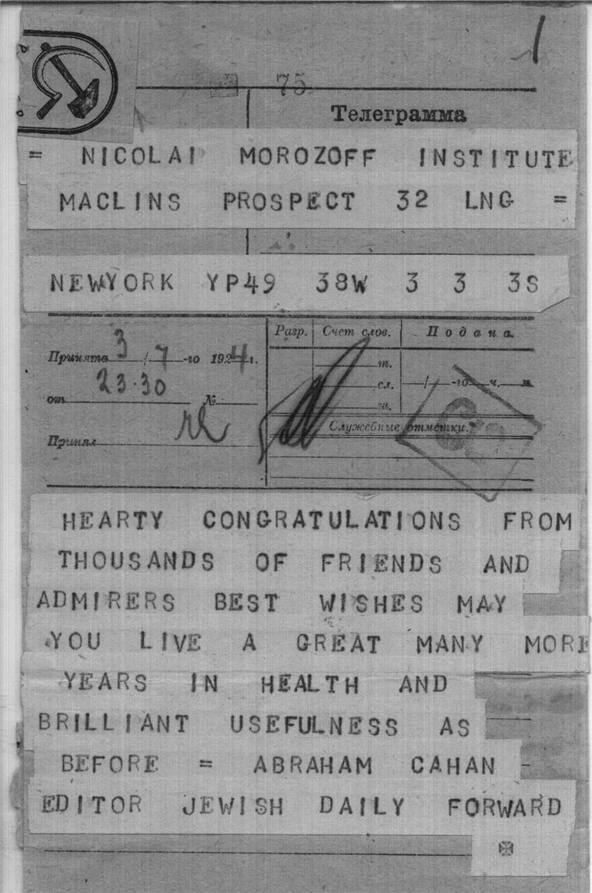 1
75
Телеграмма
= NICOLAI MOROZOFF INSTITUTE
MACLINS PROSPECT 32 LNG =
NEWYORK YP49 38W 3 3 3S
Разр. Счет слов. Подана.
Принята 3/7-го 1924 г.
23·30
т.
от №
сл. /-го ч. м.
ж.
Принял
Служебные отметки.
HEARTY CONGRATULATIONS FROM
THOUSANDS OF FRIENDS AND
ADMIRERS BEST WISHES MAY
YOU LIVE A GREAT MANY MORE
YEARS IN HEALTH AND
BRILLIANT USEFULNESS AS
BEFORE = ABRAHAM CAHAN -
EDITOR JEWISH DAILY FORWARD